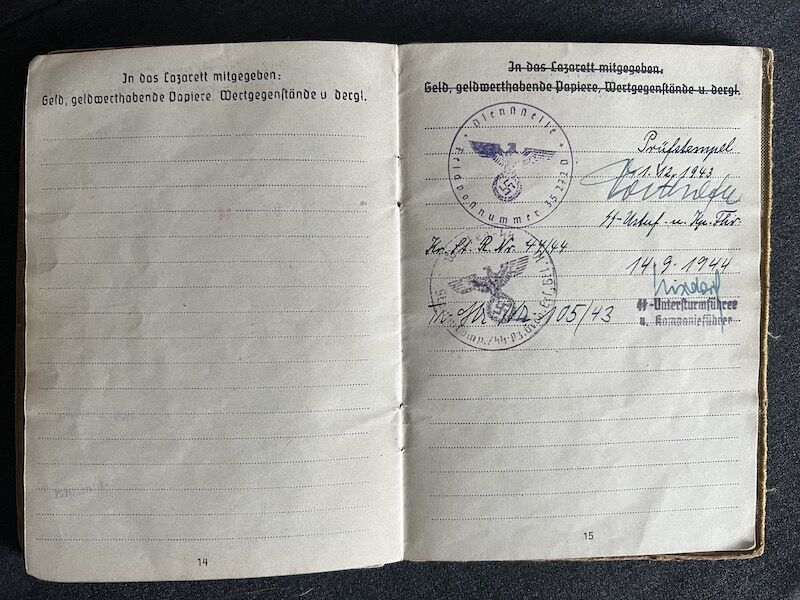 In das Lazarett mitgegeben:
Geld, geldwerthabende Papiere, Wertgegenstände u dergl.
14
In das Lazarett mitgegeben.
Geld, geldwerthabende Papiere, Wertgegenstände u. dergl.
Dienststelle
Feldpostnummer
Prüfstempel
1.12.1943
SS-Ustuf. u. Kp. Fhr
Nr. 44/44
14.9.1944
105/43
SS-Untersturmführer
u. Kompanieführer
15